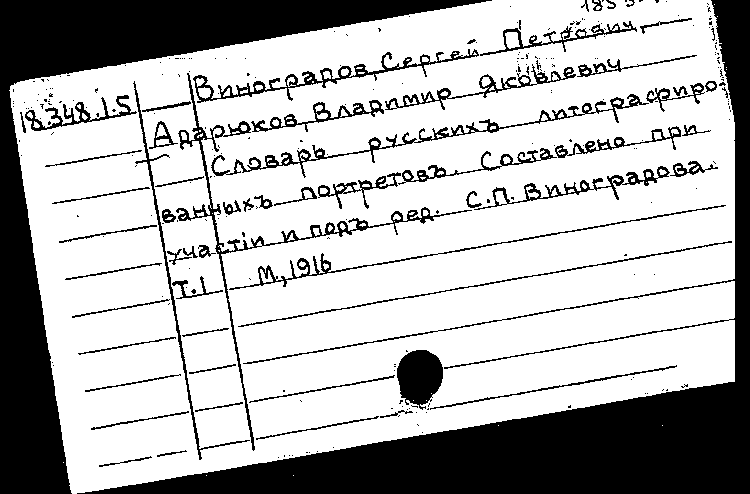 Виноградов, Сергей Петрович,
18.348.1.5
Адарюков, Владимир Яковлевич
Словарь русскихъ литографиро-
ванныхъ портретовъ. Составлено при
участiи и подъ ред. С.П. Виноградова.
Т.1 М., 1916